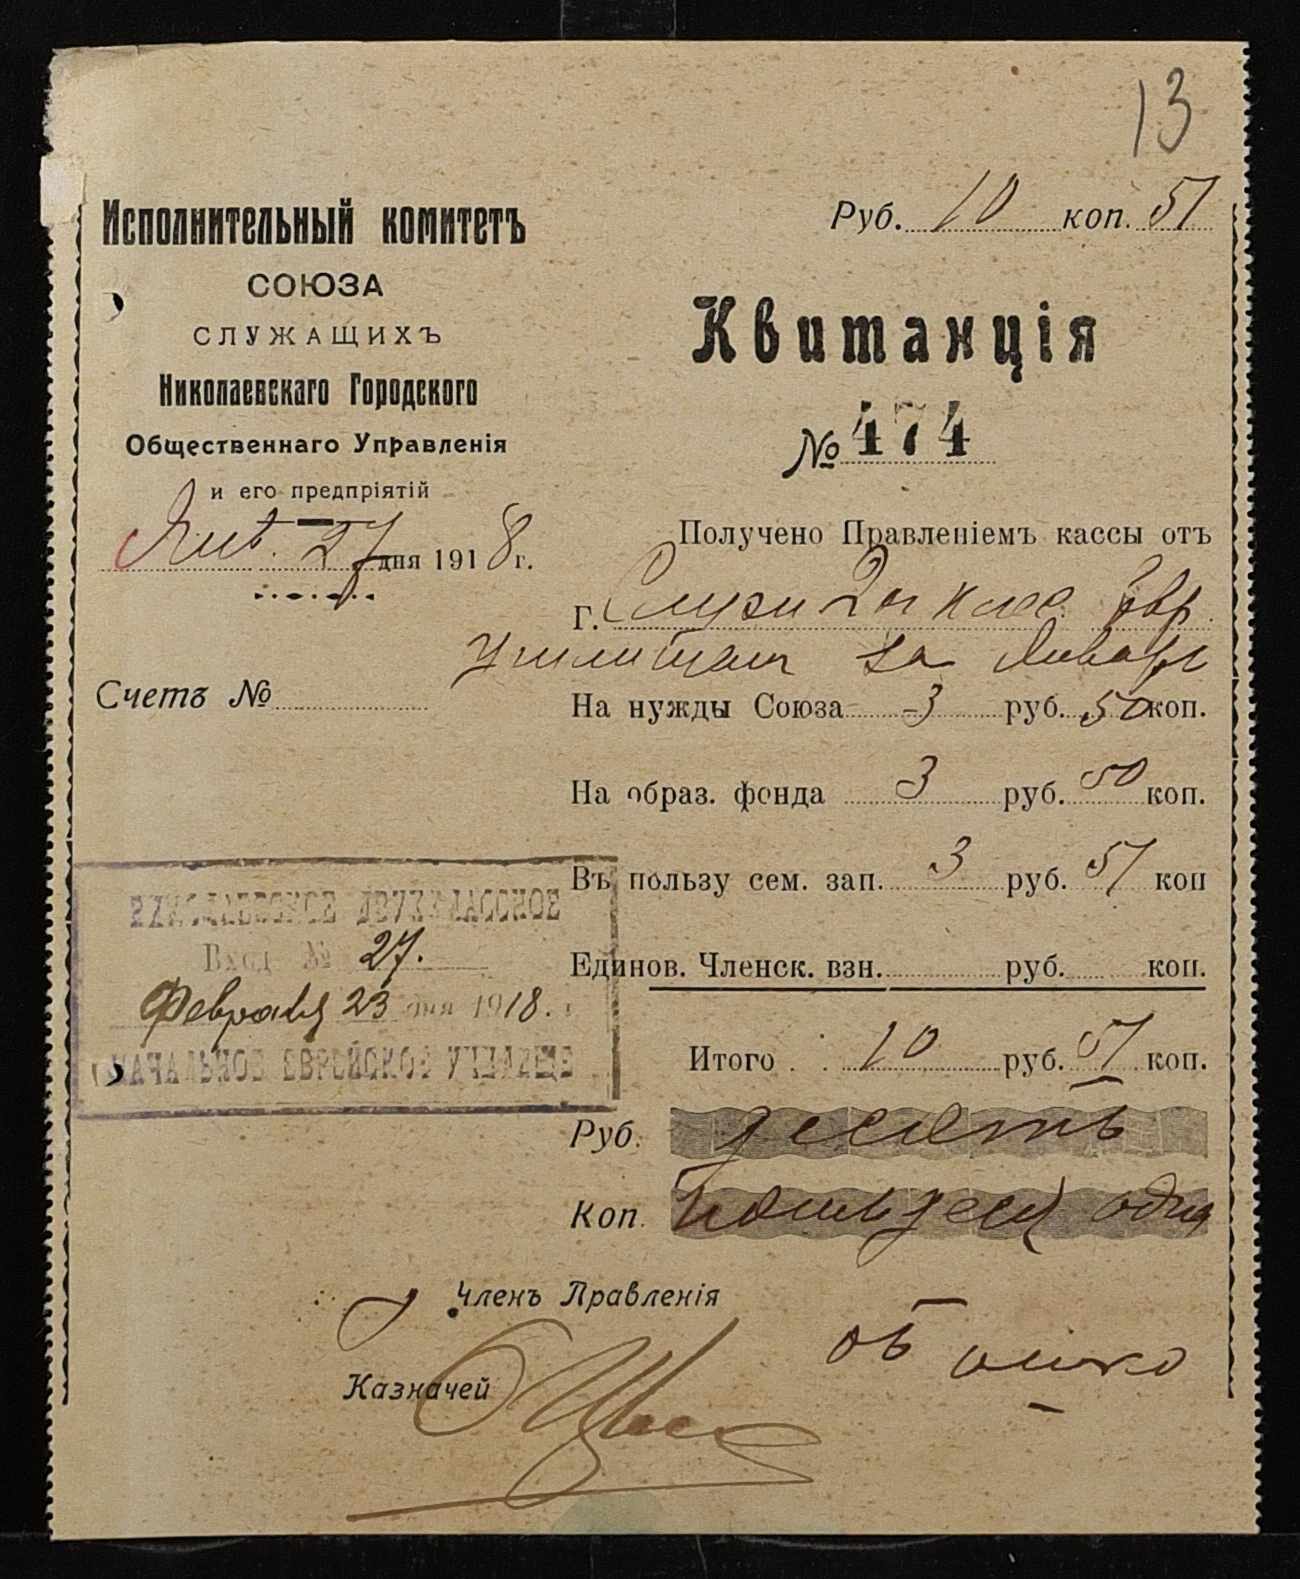 13
Исполнительный комитетъ
СОЮЗА
СЛУЖАЩИХЪ
Николаевскаго Городского
Общественнаго Управленія
и его предпріятій
Янв. 27 дня 1918 г.
Счетъ №
Руб. 10 коп. 51
Квитанція
№ 474
Получено Правленіемъ кассы отъ
г. Служ 2х клас Евр
училища за Январь
На нужды Союза 3 руб. 50 коп.
На образ. фонда 3 руб. 50 коп.
Въ пользу сем. зап. 3 руб. 51 коп
Единов. Членск. взн. руб. коп.
Итого 10 руб. 51 коп.
Руб. десять
Коп. пятьдесят одна
НИКОЛАЕВСКОЕ ДВУХКЛАССНОЕ
Вход № 27.
Февраля 23 дня 1918. г
НАЧАЛЬНОЕ ЕВРЕЙСКОЕ УЧИЛИЩЕ
Членъ Правленія
Казначей